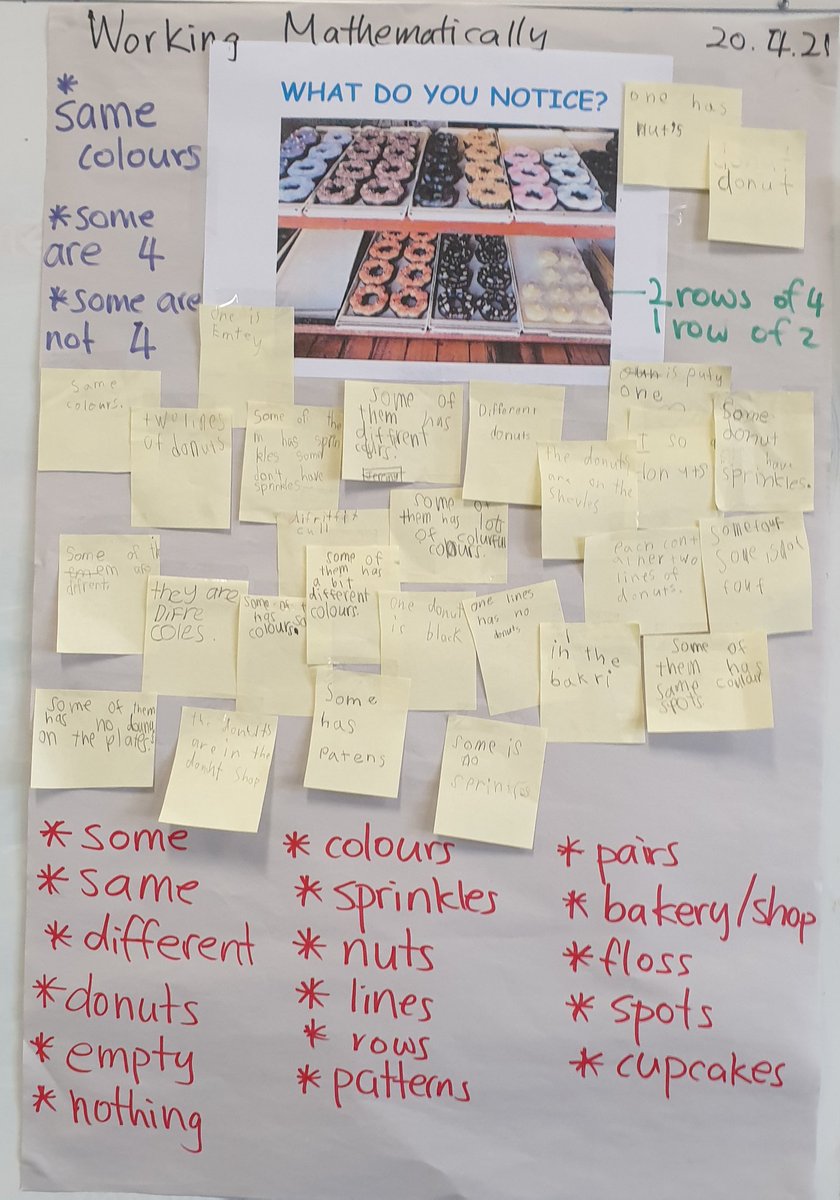 Working Mathematically
20.4.21
* same
colours
* some
are 4
* some are
not 4
WHAT DO YOU NOTICE?
one has
nut's
donut
2 rows of 4
1 row of 2
one is
Emtey
is puty
one
same
colours.
two lines
of donuts
some of the
m has sprin
kles some
don't have
sprinkles
some of
them has
different
Different
donuts
the donuts
are on the
shevles
I so
Some
donut
have
sprinkles.
some of
them has lot
of colurfull
colours.
each cont
ainer two
lines of
donuts.
some is not
Some of
are
difrent
they are
DiFre
coles.
some of
has
colours.
some of
them has
a bit
different
colours.
one donut
is black
one lines
has no
donuts
in the
bakri
some of
them has
same
spots
some of them
has no
on the plates
the
are in the
donut shop
Some
has
patens
some is
no
sprinkles
* some
* same
* different
* donuts
* empty
* nothing
* colours
* sprinkles
* nuts
* lines
* rows
* patterns
* pairs
* bakery/shop
* floss
* spots
* cupcakes